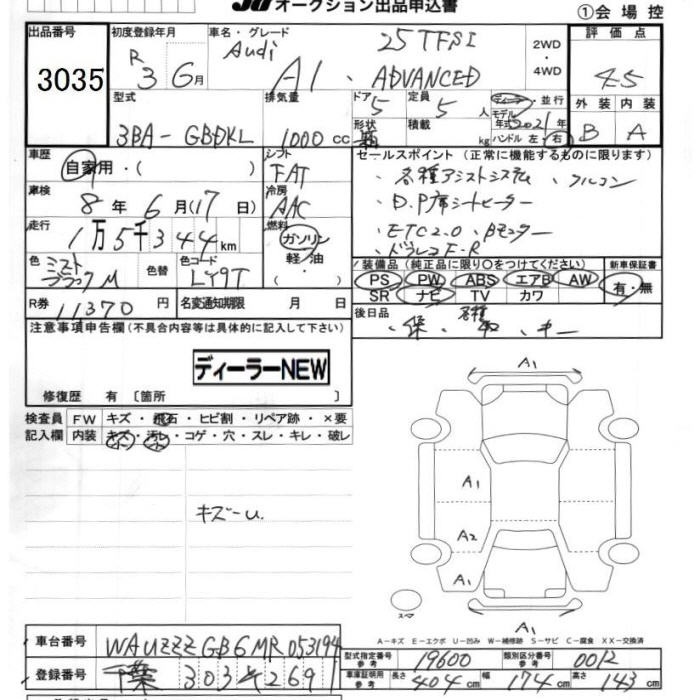 オークション出品申込書
①会場控
出品番号 3035
初度登録年月 R 3 6月
車名・グレード Audi A1 25 TFSI ADVANCED
2WD・4WD
評価点 4.5
型式 3BA-GBDKL
排気量 1000 cc
ドア 5 定員 5人
形状 積載 kg
ディーラー・並行
モデル年式 2021年
ハンドル 左・右
外装 内装
B A
車歴 自家用・( )
シフト FAT
セールスポイント(正常に機能するものに限ります)
・各種アシストシステム、クルコン
・D.P席シートヒーター
・ETC2.0、Bモニター
・ドラレコF・R
車検 8年 6月(17日)
冷房 AAC
走行 1万5千344km
燃料 ガソリン 軽油・
色 ミストブラックM 色替
色コード LY9T
装備品(純正品に限り〇をつけてください) 新車保証書
PS PW ABS エアB AW 有・無
SR ナビ TV カワ
R券 11370円 名変通知期限 月 日
後日品 ・保、各種取、キー
注意事項申告欄(不具合内容等は具体的に記入して下さい)
ディーラーNEW
修復歴 有〔箇所 〕
検査員 FW キズ・飛石・ヒビ割・リペア跡・×要
記入欄 内装 キズ・汚レ・コゲ・穴・スレ・キレ・破レ
キズ-u.
A1
A1
A2
A1
A1
スペア
A-キズ E-エクボ U-凹み W-補修跡 S-サビ C-腐食 XX-交換済
車台番号 WAUZZZGB6MR053194
登録番号 千葉 303 そ 2691
型式指定番号 参考 19600 類別区分番号 参考 0012
車庫証明用 参考 長さ 404cm 幅 174cm 高さ 143cm